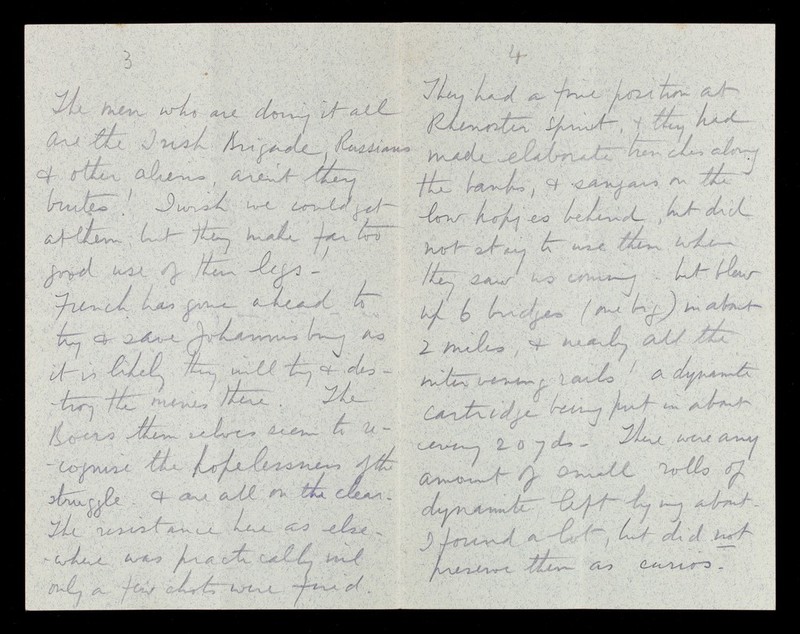 3
The men who are doing it all
are the Irish Brigade, Russians
& other aliens, aren't they
brutes! I wish we could get
at them, but they make far too
good use of their legs -
French has gone ahead to
try & save Johannisburg as
it is likely they will try & des-
-troy the mines there. The
Boers themselves seem to re-
-cognise the hopelessness of the
struggle. & are all on the clear.
The resistance here as else-
-where was practically nil
only a few shots were fired.
4
They had a fine position at
Rhenoster Spruit, & they had
made elaborate trenches along
the banks, & sangars on the
low kopjes behind, but did
not stay to use them when
they saw us coming - but blew
up 6 bridges (one big) in about
2 miles, & nearly all the
intervening rails! a dynamite
cartridge being put in about
every 20 yds - There were any
amount of small rolls of
dynamite left lying about.
I found a lot, but did not
preserve them as curios.